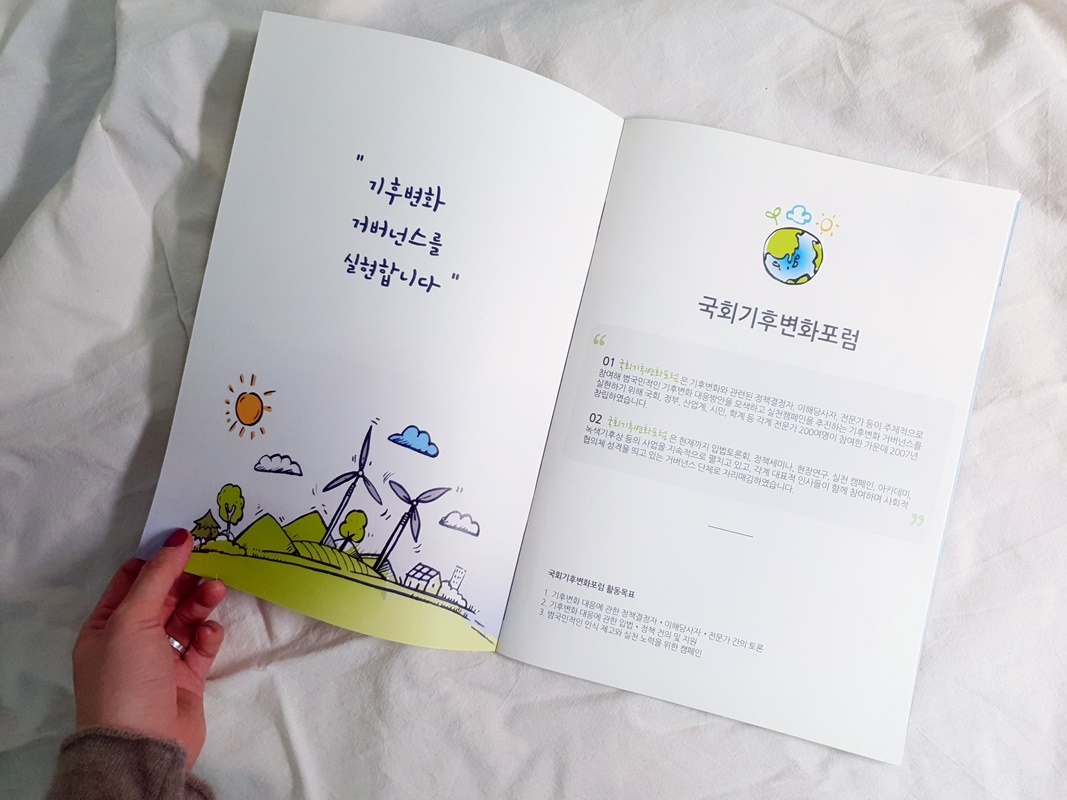 "기후변화
거버넌스를
실현합니다"
국회기후변화포럼
“
01 국회기후변화포럼은 기후변화와 관련된 정책결정자, 이해당사자, 전문가 등이 주체적으로
참여해 범국민적인 기후변화 대응방안을 모색하고 실천캠페인을 추진하는 기후변화 거버넌스를
실현하기 위해 국회, 정부, 산업계, 시민, 학계 등 각계 전문가 200여명이 참여한 가운데 2007년
창립하였습니다.
02 국회기후변화포럼은 현재까지 입법토론회, 정책세미나, 현장연구, 실천 캠페인, 아카데미,
녹색기후상 등의 사업을 지속적으로 펼치고 있고, 각계 대표적 인사들이 함께 참여하며 사회적
협의체 성격을 띄고 있는 거버넌스 단체로 자리매김하였습니다.
”
국회기후변화포럼 활동목표
1. 기후변화 대응에 관한 정책결정자•이해당사자•전문가 간의 토론
2. 기후변화 대응에 관한 입법•정책 건의 및 지원
3. 범국민적인 인식 제고와 실천 노력을 위한 캠페인